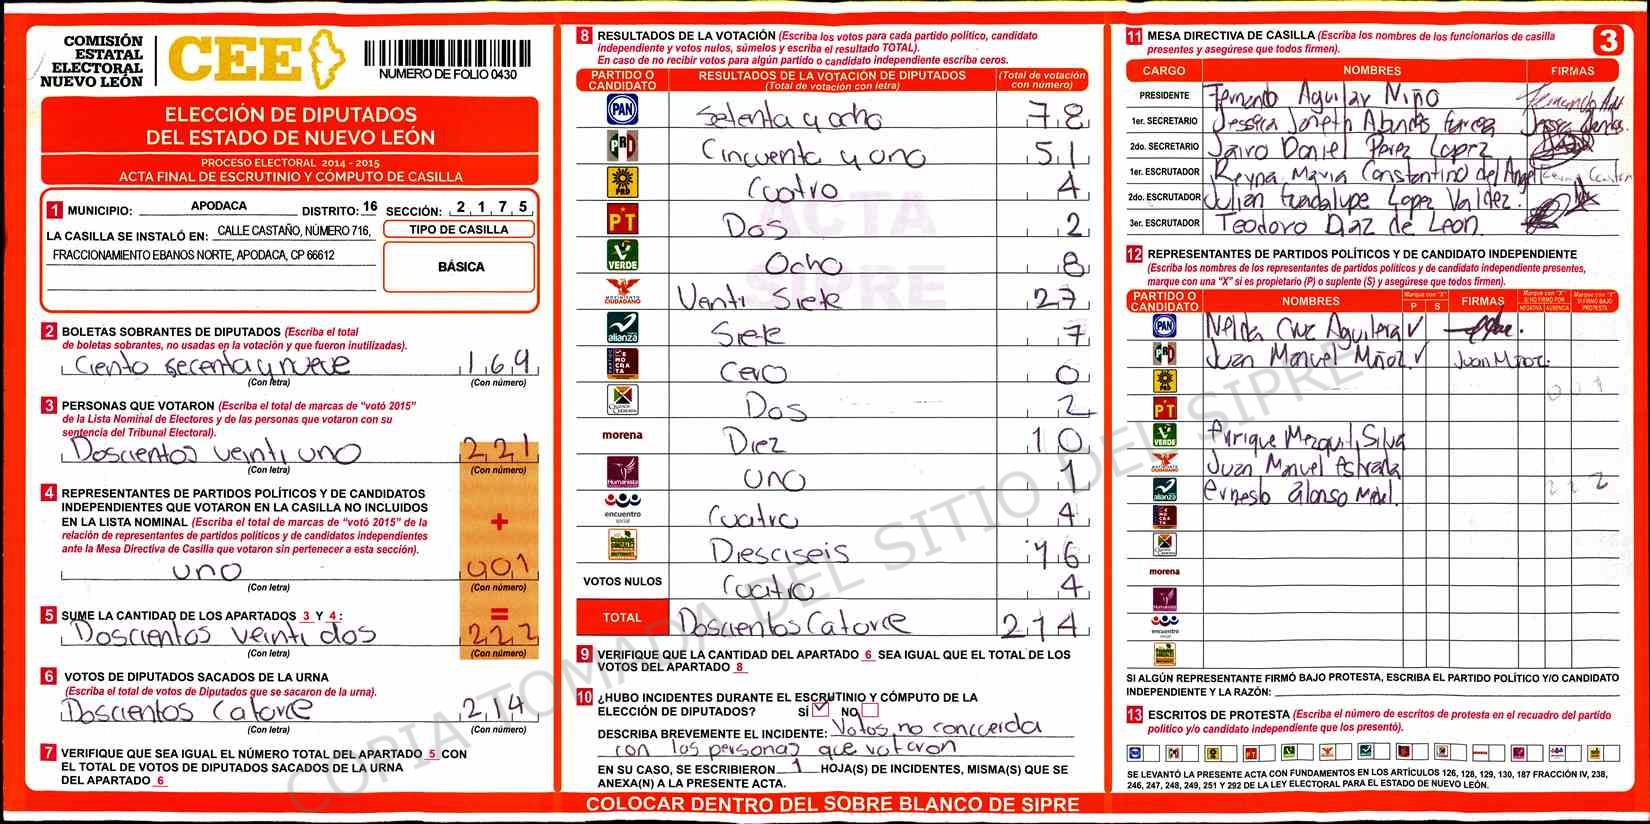 COMISIÓN
ESTATAL
ELECTORAL
NUEVO LEÓN
CEE
NUMERO DE FOLIO 0430
ELECCIÓN DE DIPUTADOS
DEL ESTADO DE NUEVO LEÓN
PROCESO ELECTORAL 2014 - 2015
ACTA FINAL DE ESCRUTINIO Y CÓMPUTO DE CASILLA
1 MUNICIPIO: APODACA DISTRITO: 16 SECCIÓN: 2 1 7 5
LA CASILLA SE INSTALÓ EN: CALLE CASTAÑO, NÚMERO 716,
FRACCIONAMIENTO EBANOS NORTE, APODACA, CP 66612
TIPO DE CASILLA
BÁSICA
2 BOLETAS SOBRANTES DE DIPUTADOS (Escriba el total
de boletas sobrantes, no usadas en la votación y que fueron inutilizadas).
Ciento secenta y nueve 169
(Con letra) (Con número)
3 PERSONAS QUE VOTARON (Escriba el total de marcas de “votó 2015”
de la Lista Nominal de Electores y de las personas que votaron con su
sentencia del Tribunal Electoral).
Doscientos veinti uno 221
(Con letra) (Con número)
4 REPRESENTANTES DE PARTIDOS POLÍTICOS Y DE CANDIDATOS
INDEPENDIENTES QUE VOTARON EN LA CASILLA NO INCLUIDOS
EN LA LISTA NOMINAL (Escriba el total de marcas de “votó 2015” de la
relación de representantes de partidos políticos y de candidatos independientes
ante la Mesa Directiva de Casilla que votaron sin pertenecer a esta sección).
+
uno 001
(Con letra) (Con número)
5 SUME LA CANTIDAD DE LOS APARTADOS 3 Y 4:
=
Doscientos veinti dos 222
(Con letra) (Con número)
6 VOTOS DE DIPUTADOS SACADOS DE LA URNA
(Escriba el total de votos de Diputados que se sacaron de la urna).
Doscientos Catorce 214
(Con letra) (Con número)
7 VERIFIQUE QUE SEA IGUAL EL NÚMERO TOTAL DEL APARTADO 5 CON
EL TOTAL DE VOTOS DE DIPUTADOS SACADOS DE LA URNA
DEL APARTADO 6
8 RESULTADOS DE LA VOTACIÓN (Escriba los votos para cada partido político, candidato
independiente y votos nulos, súmelos y escriba el resultado TOTAL).
En caso de no recibir votos para algún partido o candidato independiente escriba ceros.
PARTIDO O CANDIDATO RESULTADOS DE LA VOTACIÓN DE DIPUTADOS (Total de votación con letra) (Total de votación con número)
PAN Setenta y ocho 78
PRD Cincuenta y uno 51
PRD Cuatro 4
PT Dos 2
VERDE Ocho 8
MOVIMIENTO CIUDADANO Veinti Siete 27
alianza Siete 7
DEMOCRATA Cero 0
CRUZADA CIUDADANA Dos 2
morena Diez 10
Humanista uno 1
encuentro social Cuatro 4
Diesciseis 16
VOTOS NULOS Cuatro 4
TOTAL Doscientos Catorce 214
ACTA
SIPRE
9 VERIFIQUE QUE LA CANTIDAD DEL APARTADO 6 SEA IGUAL QUE EL TOTAL DE LOS
VOTOS DEL APARTADO 8
10 ¿HUBO INCIDENTES DURANTE EL ESCRUTINIO Y CÓMPUTO DE LA
ELECCIÓN DE DIPUTADOS? SÍ ✓ NO
DESCRIBA BREVEMENTE EL INCIDENTE: Votos no concuerda
con las personas que votaron
EN SU CASO, SE ESCRIBIERON 1 HOJA(S) DE INCIDENTES, MISMA(S) QUE SE
ANEXA(N) A LA PRESENTE ACTA.
COLOCAR DENTRO DEL SOBRE BLANCO DE SIPRE
11 MESA DIRECTIVA DE CASILLA (Escriba los nombres de los funcionarios de casilla
presentes y asegúrese que todos firmen).
3
CARGO NOMBRES FIRMAS
PRESIDENTE Fernando Aguilar Niño
1er. SECRETARIO Jessica
2do. SECRETARIO Jairo Daniel Perez Lopez
1er. ESCRUTADOR Reyna Maria Constantino del Angel
2do. ESCRUTADOR Julian Guadalupe Lopez Valdez
3er. ESCRUTADOR Teodoro Diaz de Leon
12 REPRESENTANTES DE PARTIDOS POLÍTICOS Y DE CANDIDATO INDEPENDIENTE
(Escriba los nombres de los representantes de partidos políticos y de candidato independiente presentes,
marque con una “X” si es propietario (P) o suplente (S) y asegúrese que todos firmen).
PARTIDO O CANDIDATO NOMBRES P S FIRMAS
PAN Nelda Cruz Aguilera ✓
PRD Juan Manuel Muñoz ✓ Juan Muñoz
PRD 001
PT
VERDE Enrique Mezquiti Silva
Juan Manuel Estrada
alianza Ernesto Alonso 222
morena
Humanista
encuentro social
SI ALGÚN REPRESENTANTE FIRMÓ BAJO PROTESTA, ESCRIBA EL PARTIDO POLÍTICO Y/O CANDIDATO
INDEPENDIENTE Y LA RAZÓN:
13 ESCRITOS DE PROTESTA (Escriba el número de escritos de protesta en el recuadro del partido
político y/o candidato independiente que los presentó).
SE LEVANTÓ LA PRESENTE ACTA CON FUNDAMENTOS EN LOS ARTÍCULOS 126, 128, 129, 130, 187 FRACCIÓN IV, 238,
246, 247, 248, 249, 251 Y 292 DE LA LEY ELECTORAL PARA EL ESTADO DE NUEVO LEÓN.
COPIA TOMADA DEL SITIO DEL SIPRE